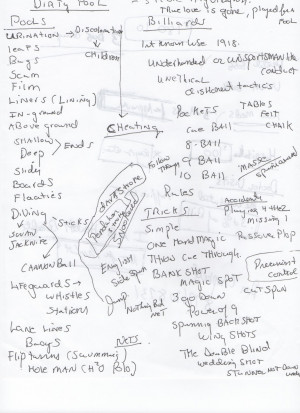 DIRTY POOL
POOLS
URINATION → Discoloration
CHILDREN
Leaves
Bugs
Scum
Film
Liners (Lining)
IN-ground
Above ground
Shallow
Deep
Ends
Slides
Boards
Floaties
Diving
Sticks
SWAN
JACKNIFE
CANNON BALL
Lifeguards →
Whistles
Stations
Lane Lines
Buoys
NETS
Flip turns (Swimming)
Hole Man (H2O Polo)
True love is gone, played for a
fool
Billiards
1st Known Use 1918.
Underhanded or UNSPORTSMANlike
conduct
UNethical
dishonest tactics
CHEATING
Pockets
TABLES
FELT
CHALK
Cue Ball
8-BALL
9 BALL
10 BALL
Follow
Through
MASSE
Rules
TRICKS
Simple
One Hand Magic
Throw Cue Through
BANK SHOT
MAGIC SPOT
3 go Down
Power of 9
Spinning BACK SHOT
WING SHOTS
The Double Blind
Wedding SHOT
Accidents
Playing 4 the 2
Missing 1
Passover Plop
Preeminent
Contend
CUT SPIN
English
Side Spin
Jump
Nothing But
NET